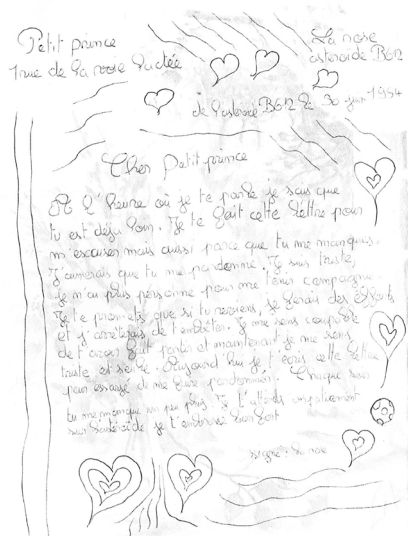 Petit prince
1 rue de la voie lactée
La rose
asteroide B612
de l'asteroide B612 le 30 juin 1994
Cher Petit prince
A l'heure où je te parle je sais que
tu est déja loin. Je te fait cette lettre pour
m'excuser mais aussi parce que tu me manques.
J'aimerais que tu me pardonne. Je suis triste,
Je n'ai plus personne pour me tenir compagnie.
Je te promets que si tu reviens, je ferais des efforts
et j'arrêterais de t'embêter. Je me sens coupable
de t'avoir fait partir et maintenant je me sens
triste et seule. Aujourd'hui je t'écris cette lettre
pour essayé de me faire pardonner. Chaque jour
tu me manque un peu plus. Je t'attends impatiemment
sur l'astéroide je t'embrasse bien fort
signé: la rose